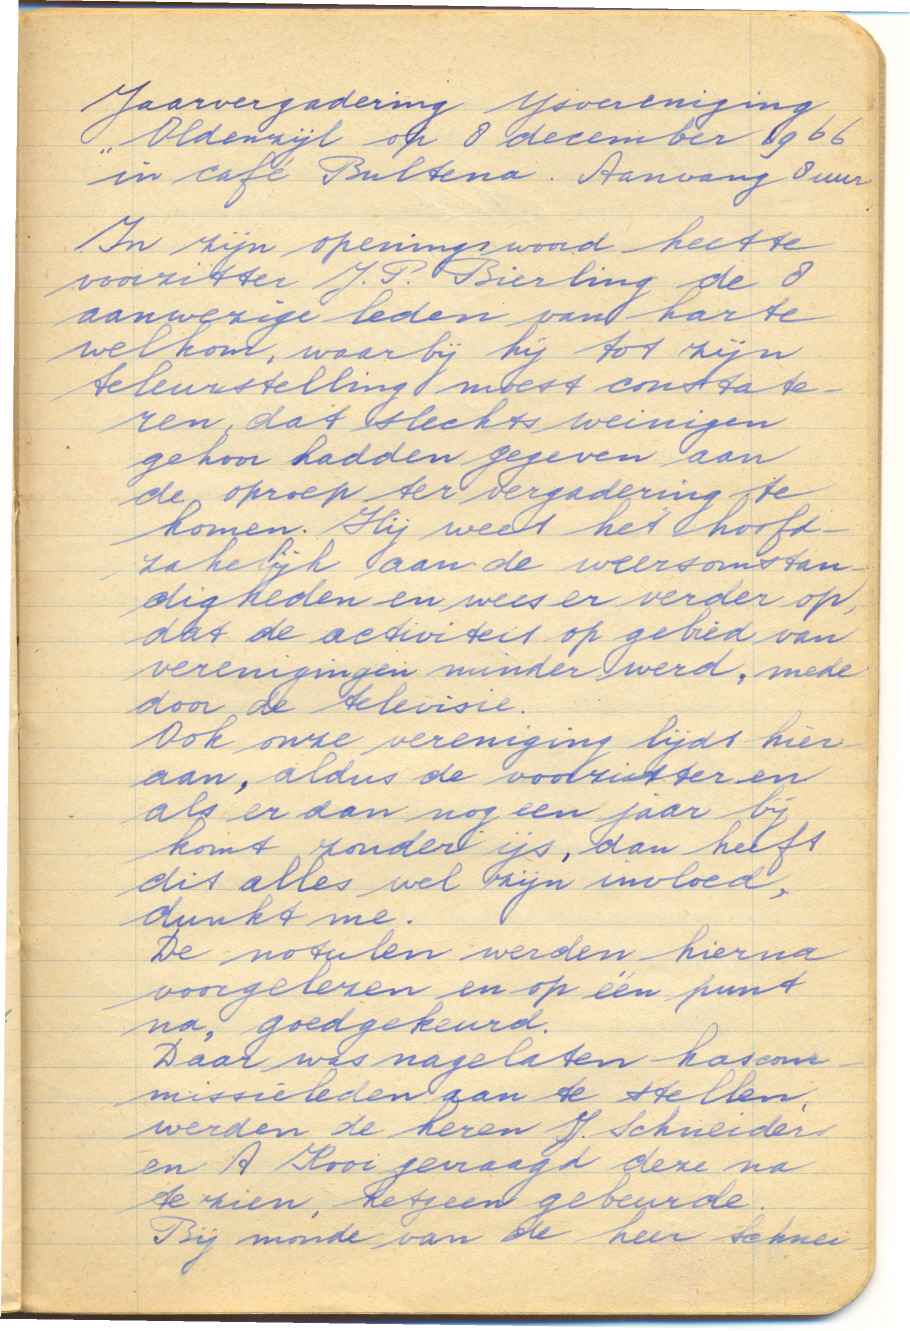 Jaarvergadering IJsvereniging
„Oldenzijl op 8 december 1966
in café Bultena. Aanvang 8 uur
In zijn openingswoord heette
voorzitter J.P. Bierling de 8
aanwezige leden van harte
welkom, waarbij hij tot zijn
teleurstelling moest constate-
ren, dat slechts weinigen
gehoor hadden gegeven aan
de oproep ter vergadering te
komen. Hij weet het hoofd-
zakelijk aan de weersomstan-
digheden en wees er verder op,
dat de activiteit op gebied van
verenigingen minder werd, mede
door de televisie.
Ook onze vereniging lijdt hier-
aan, aldus de voorzitter en
als er dan nog een jaar bij
komt zonder ijs, dan heeft
dit alles wel zijn invloed,
dunkt me.
De notulen werden hierna
voorgelezen en op één punt
na, goedgekeurd.
Daar was nagelaten kascom-
missieleden aan te stellen,
werden de heren J. Schneider
en A Kooi gevraagd deze na
te zien, hetgeen gebeurde.
Bij monde van de heer Schnei-